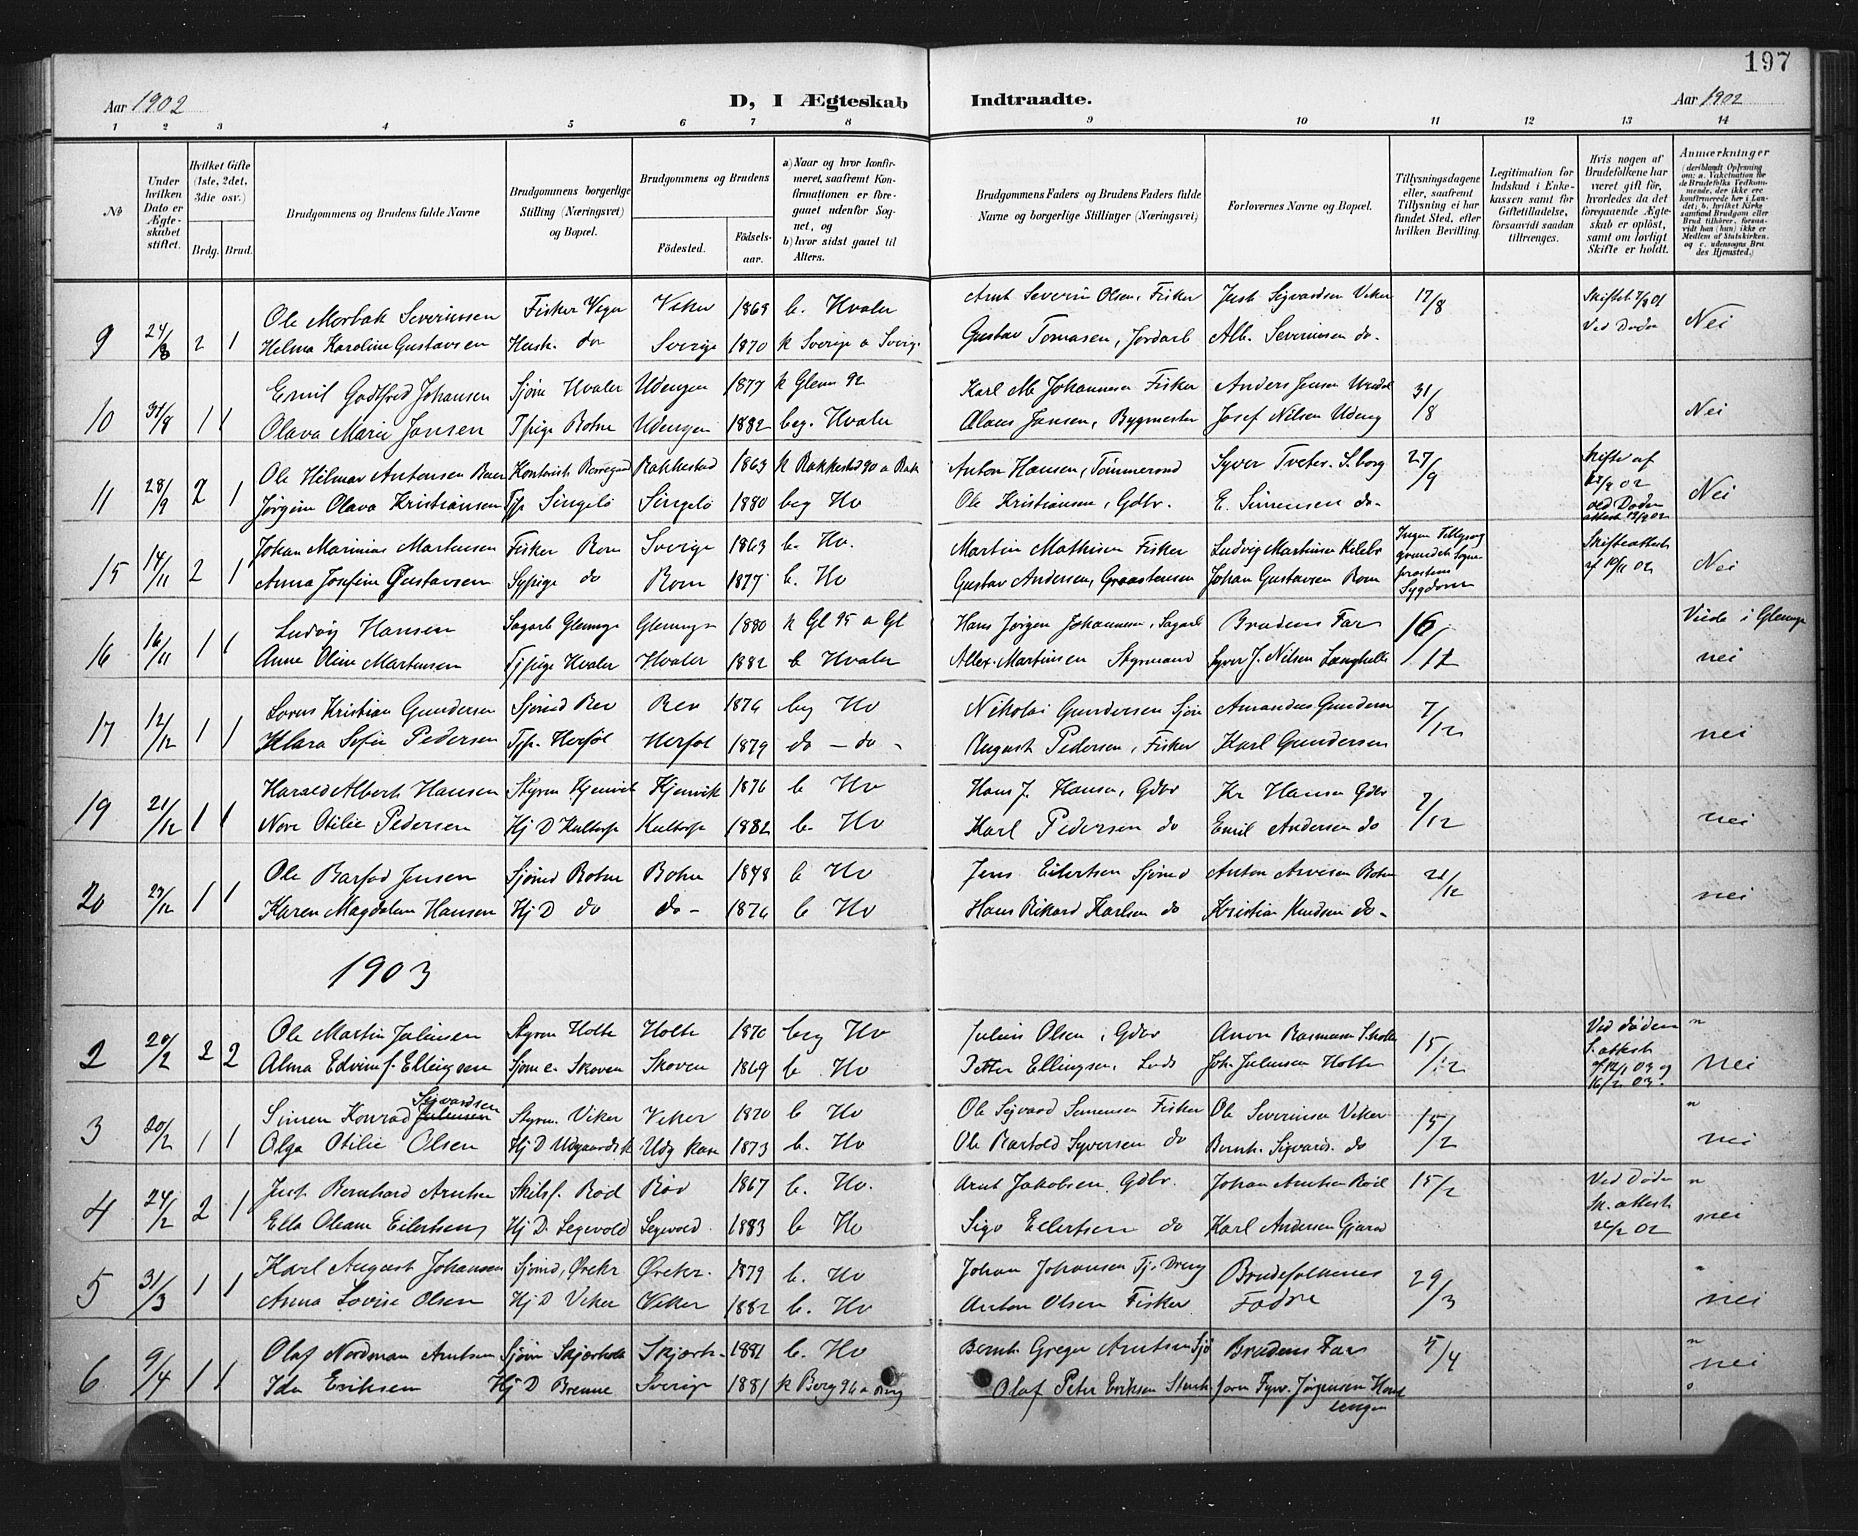 197
Aar 1902 D, I Ægteskab Indtraadte. Aar 1902
1 2 3 4 5 6 7 8 9 10 11 12 13 14
No
Under hvilken Dato er Ægteskabet stiftet.
Hvilket Gifte (1ste, 2det, 3die osv.)
Brdg. Brud.
Brudgommens og Brudens fulde Navne
Brudgommens borgerlige Stilling (Næringsvei) og Bopæl.
Brudgommens og Brudens
Fødested. Fødsels-aar.
a) Naar og hvor konfirmeret, saafremt Konfirmationen er foregaaet udenfor Sognet, og
b) hvor sidst gaaet til Alters.
Brudgommens Faders og Brudens Faders fulde Navne og borgerlige Stillinger (Næringsvei)
Forlovernes Navne og Bopæl.
Tillysningsdagene eller, saafremt Tillysning ei har fundet Sted, efter hvilken Bevilling.
Legitimation for Indskud i Enkekassen samt for Giftetilladelse, forsaavidt saadan tiltrænges.
Hvis nogen af Brudefolkene har været gift før, hvorledes da det foregaaende Ægteskab er opløst, samt om lovligt Skifte er holdt.
Anmærkninger
9 24/8 2 1 Ole Morbak Severinsen Fisker Viker 1869 b. Hvaler Arnt Severin Olsen, Fisker Just Sigvardsen Viker 17/8 Ved Døden Nei
Helma Karoline Gustavsen Hush. do Sverige 1870 k Sverige a Sverig. Gustav Tomasen, Jordarb Alb. Severinsen do.
10 31/8 1 1 Emil Godtfred Johansen Sjøm Hvaler Udengen 1877 k Glem 92 Karl M Johannesen Fisker Anders Jensen 31/8 Nei
Olava Marie Jansen Tjpige Botne Udengen 1882 beg. Hvaler Claus Jansen, Bygmester Josef Nilsen Udeng
11 28/9 2 1 Ole Hilmar Antonsen Kontorist Borregaard Rakkestad 1869 k Rakkestad 90 a Rak Anton Hansen, Tømmermd Syver Tveter. S.borg 27/9 Skifte af ved Døden Nei
Jørgine Olava Kristiansen Tjp Singelø Singelø 1880 beg Hv Ole Kristiansen, Gdbr. E. Simensen do.
15 14/11 2 1 Johan Marinius Martensen Fisker Rom Sverige 1863 b. Hv. Martin Mathisen Fisker Ludvig Martinsen Ingen Tillysng grundet Sogneprestens Sygdom Skifteattest af 10/11 02 Nei
Anna Josefine Gustavsen Sypige do Rom 1877 b. Hv Gustav Andersen, Graastensen Johan Gustavsen Rom
16 16/11 1 1 Ludvig Hansen Sagarb Glemmge Glemmge 1880 k Gl 95 a Gl Hans Jørgen Johannesen, Sagarb Brudens Far 16/11 Viede i Glemge
Anne Oline Martensen Tjpige Hvaler Hvaler 1882 b Hvaler Allex. Martinsen Styrmand Syver J. Nilsen Langhelle nei
17 12/12 1 1 Lovus Kristian Gundersen Sjømd Rev Rev 1876 beg Hv Nikolai Gundersen Sjøm Amandus Gundersen 7/12 nei
Klara Sofie Pedersen Tjp. Herføl Herføl 1879 do - do - August Pedersen, Fisker Karl Gundersen
19 21/12 1 1 Harald Albert Hansen Styrm Kjenvik Kjenvik 1876 b Hv Hans J. Hansen, Gdbr Kr Hansen Gdbr 7/12 nei
Nora Otilie Pedersen Hj D Kultorp Kultorp 1882 b. Hv Karl Pedersen do Emil Andersen do
20 27/12 1 1 Ole Barfod Jensen Sjømd Botne Botne 1878 b Hv Jens Eilertsen Sjømd Anton Arvesen Botne 21/12 nei
Karen Magdalene Hansen Hj D do do - 1876 b Hv Hans Rikard Karlsen do Kristian Knudsen do -
1903
2 20/2 2 2 Ole Martin Julinsen Styrm Holte Holte 1870 beg Hv Julius Olsen, Gdbr Anon Rasmussen 15/2 Ved døden S. attest af 12/1 03 og 16/2 03. "
Alma Edvine f. Ellingsen Sjøm e. Skoven Skoven 1869 b. Hv Petter Ellingsen, Lods Joh. Julinsen Holte nei
3 20/2 1 1 Simen Konrad Julinsen Sigvardsen Styrm. Viker Viker 1870 b Hv Ole Sigvard Simensen Fisker Ole Severinsen Viker 15/2 "
Olga Otilie Olsen Hj D Udgaardsk Udg kase 1873 b. Hv Ole Bartold Syversen do Bernh. Sigvards. do nei
4 24/2 2 1 Just Bernhard Arntsen Skibsf. Rød Rød 1867 b. Hv. Arnt Jakobsen Gdbr. Johan Arntsen Rød 15/2 Ved Døden Sk. attest 20/2 02 "
Ella Oleane Eilertsen Hj D. Segevold Segevold 1883 b Hv Sigv Eilertsen do Karl Andersen Gjærd nei
5 31/3 1 1 Karl August Johansen Sjømd, Ørekr Ørekr. 1879 b. Hv Johan Johansen Tj. Dreng Brudefolkenes Fædre 29/3 "
Anna Lovise Olsen Hj D Viker Viker 1882 b. Hv Anton Olsen Fisker nei
6 9/4 1 1 Olaf Nordman Arntsen Sjøm Skjærholt Skjærh. 1881 b. Hv Bernh. Greger Arntsen Sjø Brudens Far 5/4 "
Ida Eriksen Hj D Brenne Sverige 1881 k Berg 96 a Berg Olaf Peter Eriksen Stenh. Jørgensen nei